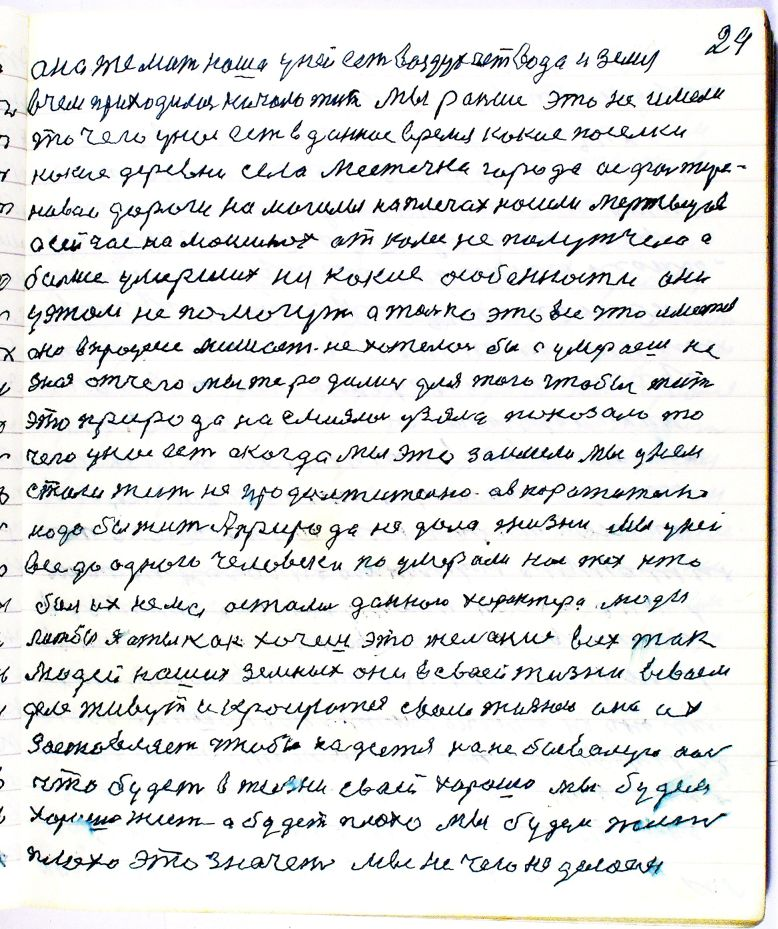 29
она же мать наша у ней есть воздух есть вода и земля
в чем приходилось начало жить мы раньше это не имели
это чего у нас есть в данное время какие поселки
какие деревни села местечка города асфальтиро-
ваные дороги на могилы на плечах носили мертвецов
а сейчас на машинах от каже не получчело а
больше умерших ни какие особенности они
у этом не помогут а только это все что имеется
оно в процессе мешает не хотелось бы а умраеш не
зная отчего мы же родились для того чтобы жить
это природа на смиялы узяла показала то
чего у нас есть а когда мы это заимели мы у нем
стали жить не продолжительно а вкоротительно
надо бы жить А природа не дала жизни мы у ней
все до одного человека по умерали нас тех кто
был их нема, остались данного характера люди
хотя бы я а ты как хочеш это желание всех так
людей наших земных они в своей жизни в своем
деле живут и хронротся своей жизнью она их
заставляет чтобы надеется на небывалую
что будет в жизни своей хорошо мы будем
хорошо жить а будет плохо мы будем жить
плохо это значит мы не чего не делаем